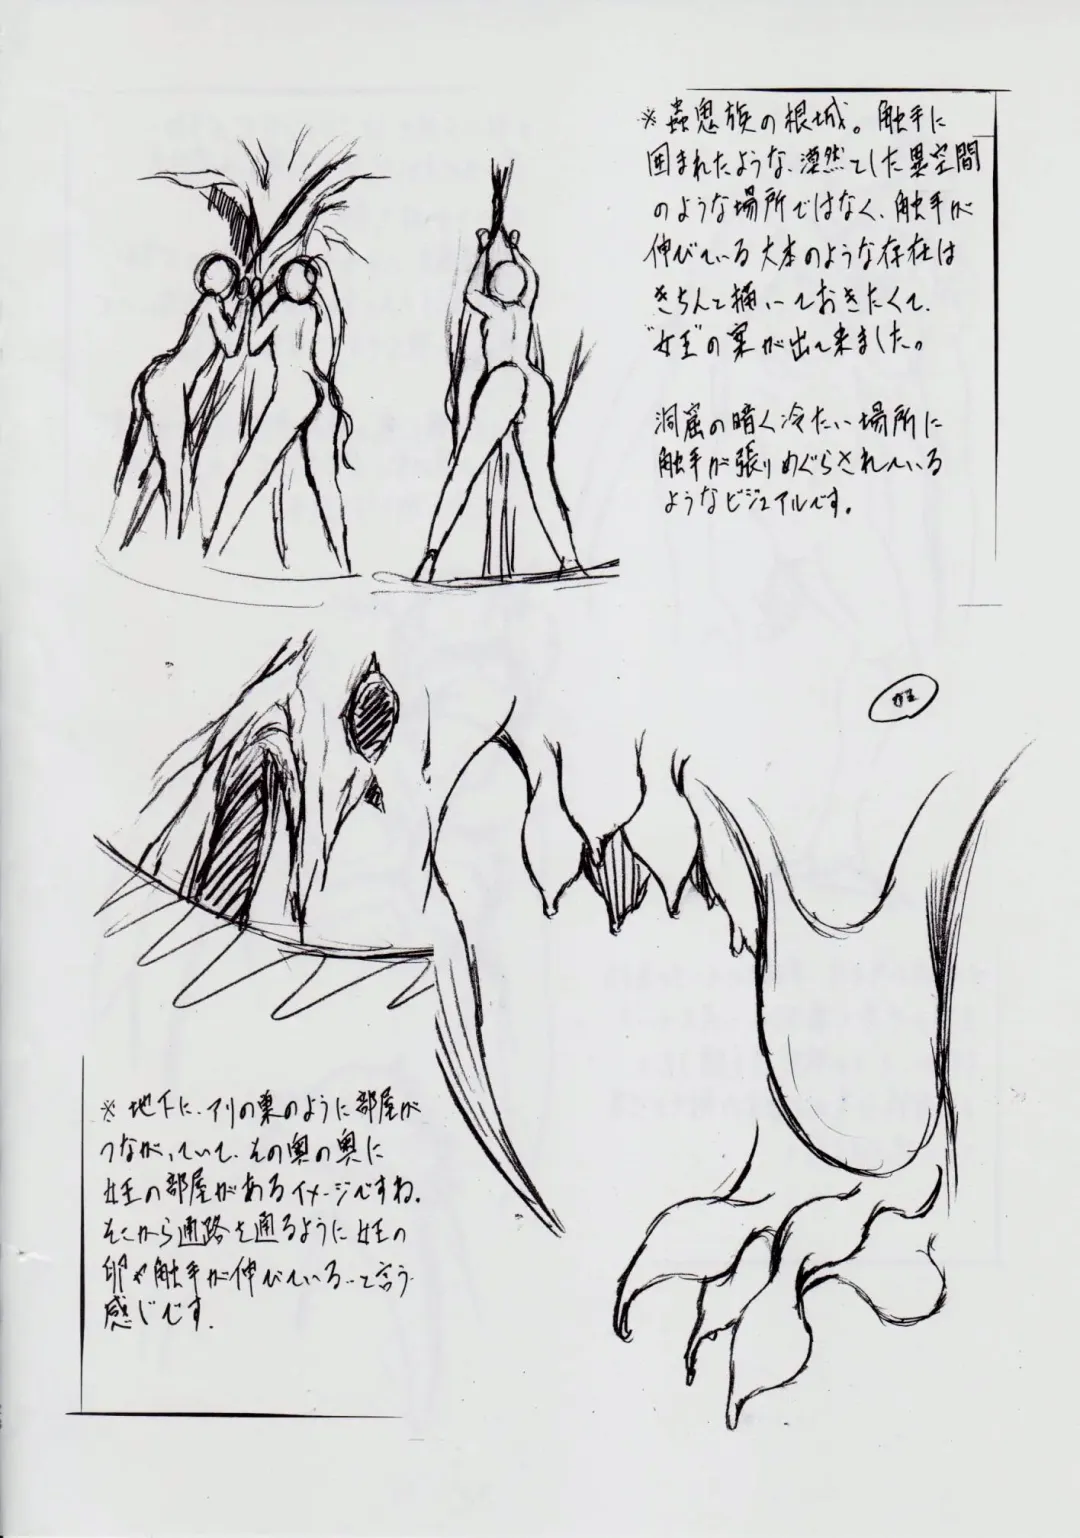 ※蟲鬼族の根城。触手に
囲まれたような、漠然とした異空間
のような場所ではなく、触手が
伸びている大本のような存在は
きちんと描いておきたくて、
"女王"の巣が出て来ました。
洞窟の暗く冷たい場所に
触手が張りめぐらされている
ようなビジュアルです。
※地下に、アリの巣のように部屋が
つながっていて、その奥の奥に
女王の部屋があるイメージですね。
そこから通路を通るように女王の
卵や触手が伸びている…と言う
感じです。